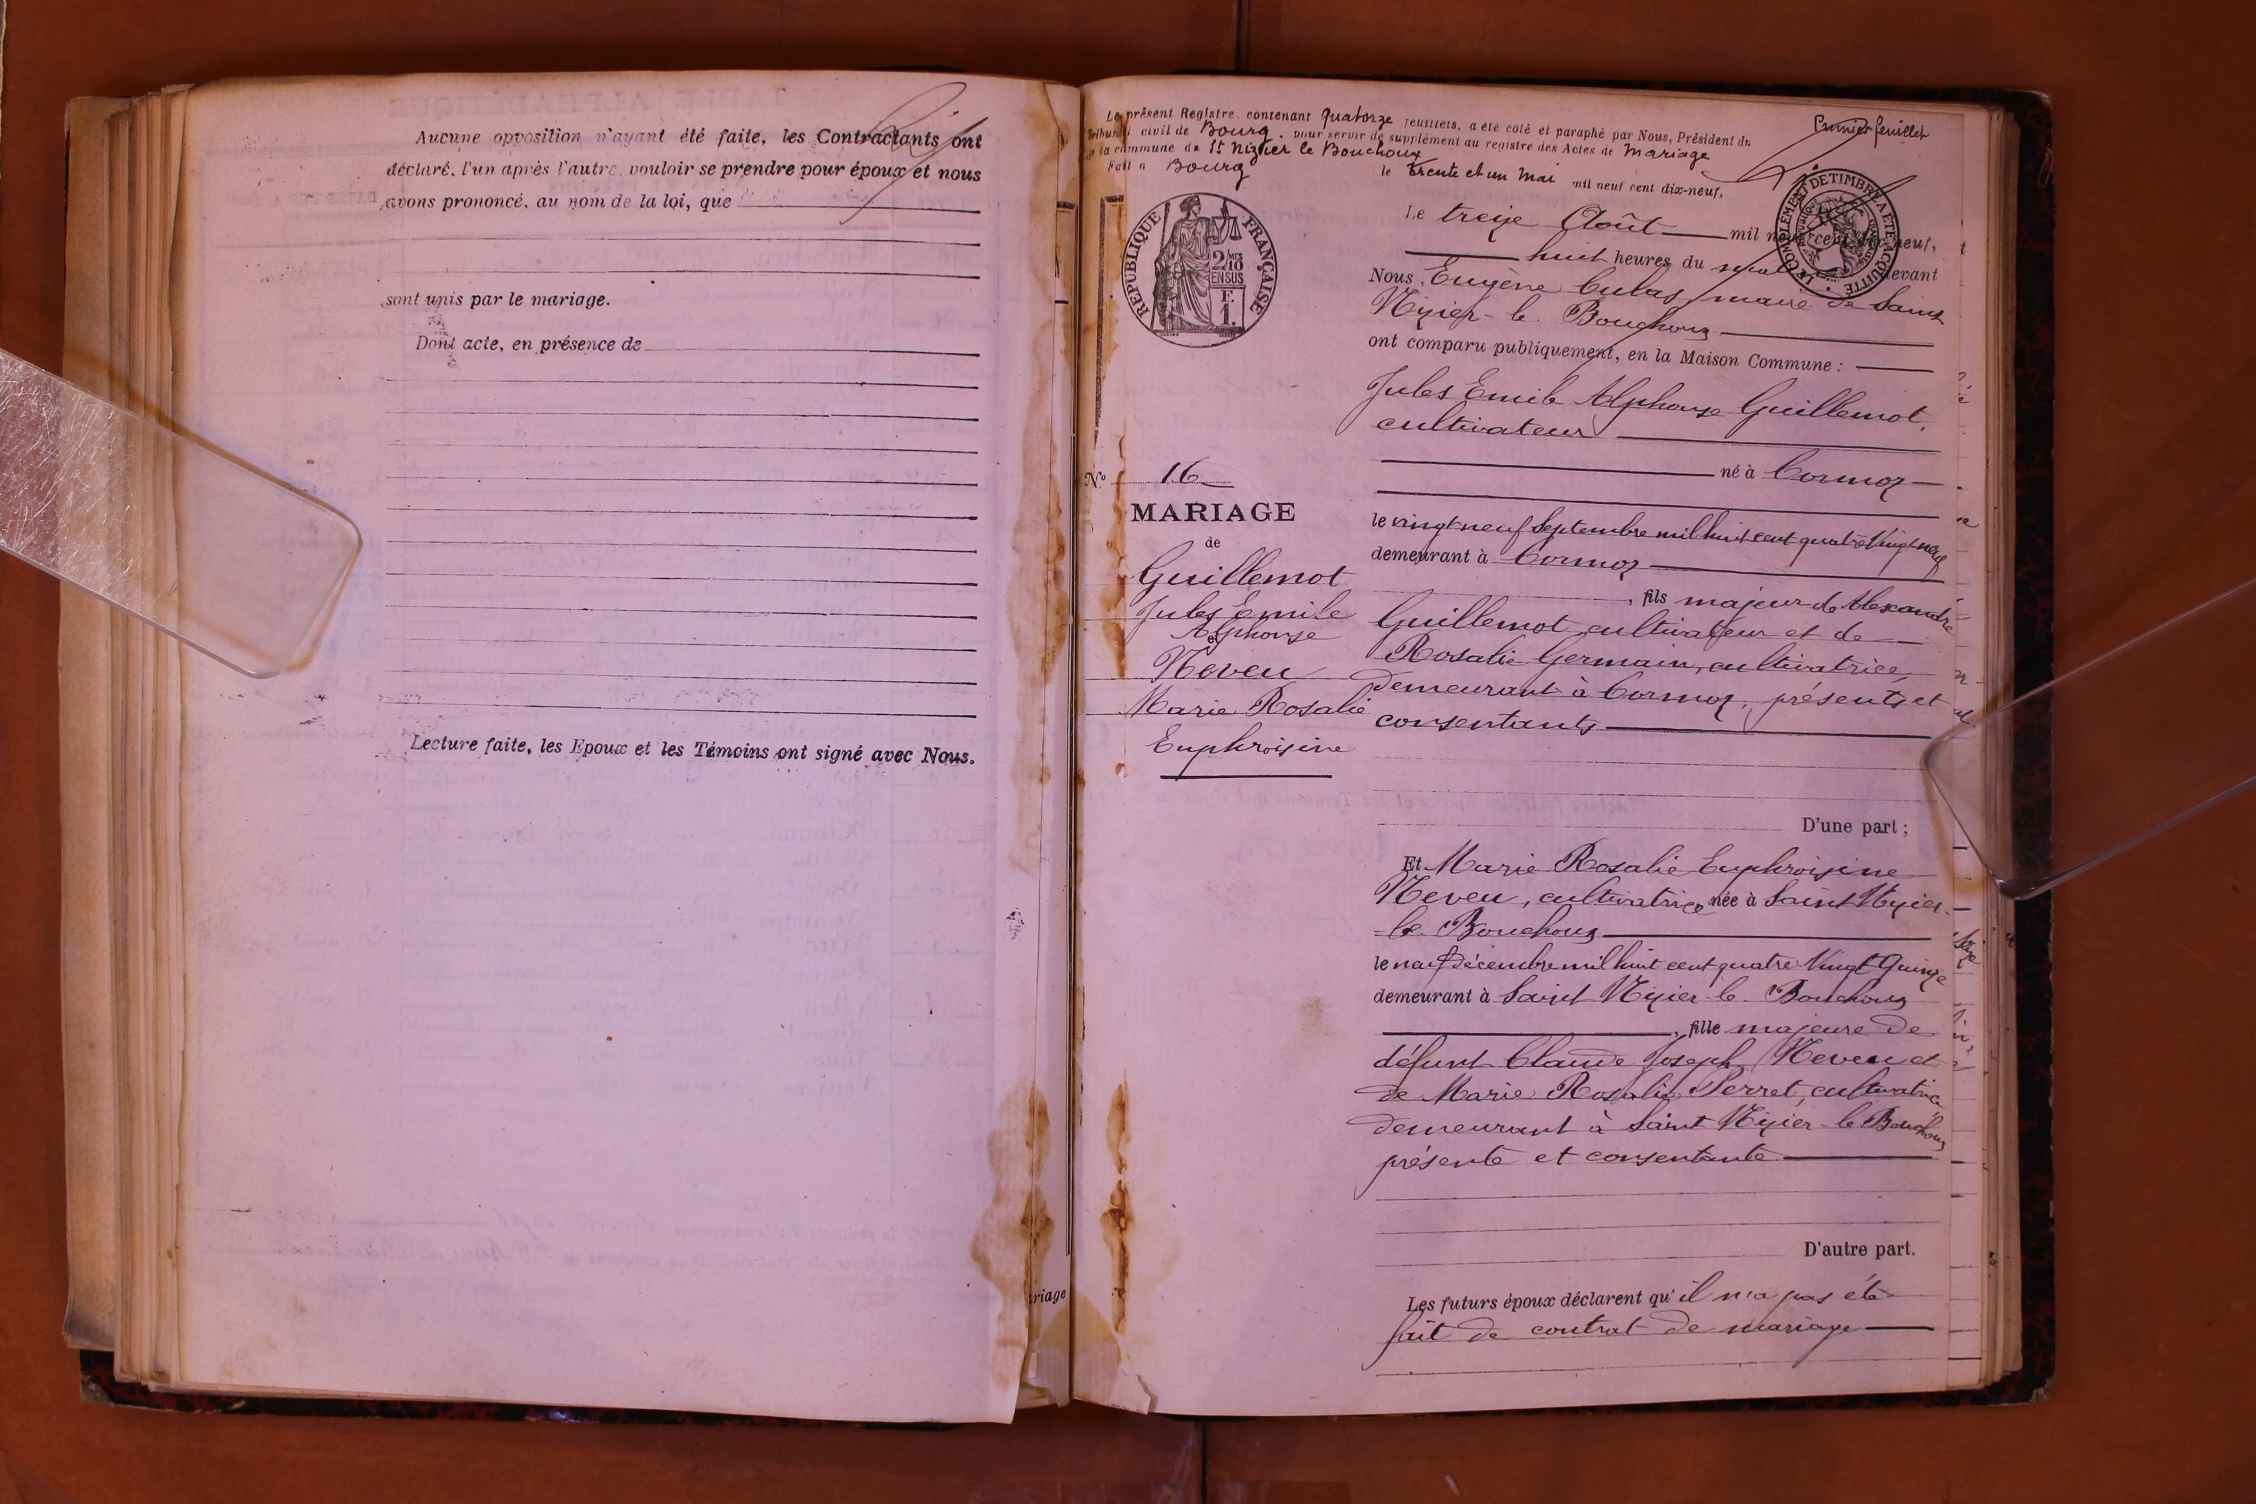 Aucune opposition n'ayant été faite, les Contractants ont
déclaré, l'un après l'autre, vouloir se prendre pour époux et nous
avons prononcé, au nom de la loi, que
sont unis par le mariage.
Dont acte, en présence de
Lecture faite, les Epoux et les Témoins ont signé avec Nous.
riage
Le présent Registre, contenant quatorze feuillets, a été coté et paraphé par Nous, Président du
Tribunal civil de Bourg, pour servir de supplément au registre des Actes de Mariage
de la commune de St Nizier le Bouchoux
Fait à Bourg le Trente et un Mai mil neuf cent dix-neuf.
Premier feuillet
REPUBLIQUE FRANÇAISE
2/10
EN SUS
F.
1.
LE COMPLEMENT DE TIMBRE A ETE ACQUITTE
Le treize Août mil neuf cent dix-neuf,
huit heures du devant
Nous, Eugène Culas, maire de Saint
Nizier-le-Bouchoux
ont comparu publiquement, en la Maison Commune :
Jules Emile Alphonse Guillemot,
cultivateur
né à Cormoz
le vingt neuf Septembre mil huit cent quatre Vingt neuf
demeurant à Cormoz
, fils majeur de Alexandre
Guillemot, cultivateur et de
Rosalie Germain, cultivatrice,
demeurant à Cormoz, présents et
consentants
D'une part ;
No 16
MARIAGE
de
Guillemot
Jules Emile
Alphonse
et
Neveu
Marie Rosalie
Euphroisine
Et Marie Rosalie Euphroisine
Neveu, cultivatrice née à Saint Nizier-
-le-Bouchoux
le neuf Décembre mil huit cent quatre Vingt Quinze
demeurant à Saint Nizier-le-Bouchoux
, fille majeure de
défunt Claude Joseph Neveu et
de Marie Rosalie Perret, cultivatrice
demeurant à Saint Nizier-le Bouchoux
présente et consentante
D'autre part.
Les futurs époux déclarent qu'il n'a pas été
fait de contrat de mariage